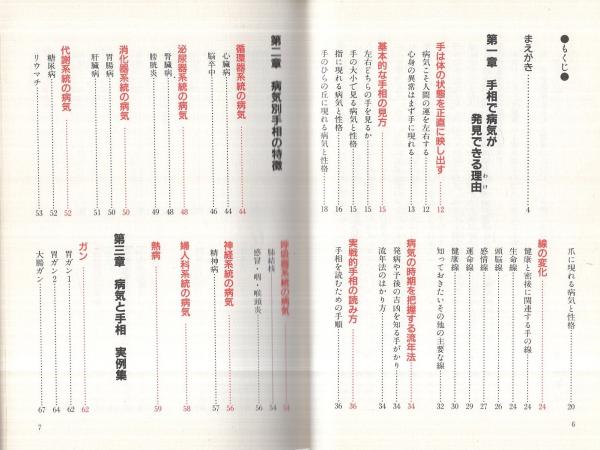 ●もくじ●
まえがき……4
第一章 手相で病気が
発見できる理由
わけ
手は体の状態を正直に映し出す……12
病気こそ人間の運を左右する……12
心身の異常はまず手に現れる……13
基本的な手相の見方……15
左右どちらの手を見るか……15
手の大小で見る病気と性格……15
指に現れる病気と性格……16
手のひらの丘に現れる病気と性格……18
爪に現れる病気と性格……20
線の変化……24
健康と密接に関連する手の線……24
生命線……24
頭脳線……26
感情線……27
運命線……29
健康線……30
知っておきたいその他の主要な線……32
病気の時期を把握する流年法……34
発病や予後の吉凶を知る手がかり……34
流年法のはかり方……34
実戦的手相の読み方……36
手相を読むための手順……36
6
第二章 病気別手相の特徴
循環器系統の病気……44
心臓病……44
脳卒中……46
泌尿器系統の病気……48
腎臓病……48
膀胱炎……49
消化器系統の病気……50
胃腸病……50
肝臓病……51
代謝系統の病気……52
糖尿病……52
リウマチ……53
呼吸器系統の病気……54
肺結核……54
感冒・咽・喉頭炎……56
神経系統の病気……56
精神病……57
婦人科系統の病気……58
熱病……59
第三章 病気と手相 実例集
ガン……62
胃ガン1……62
胃ガン2……64
大腸ガン……67
7